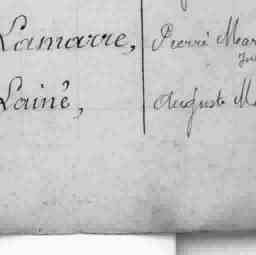 Lamarre, Pierre Mar
Lainé, Auguste M